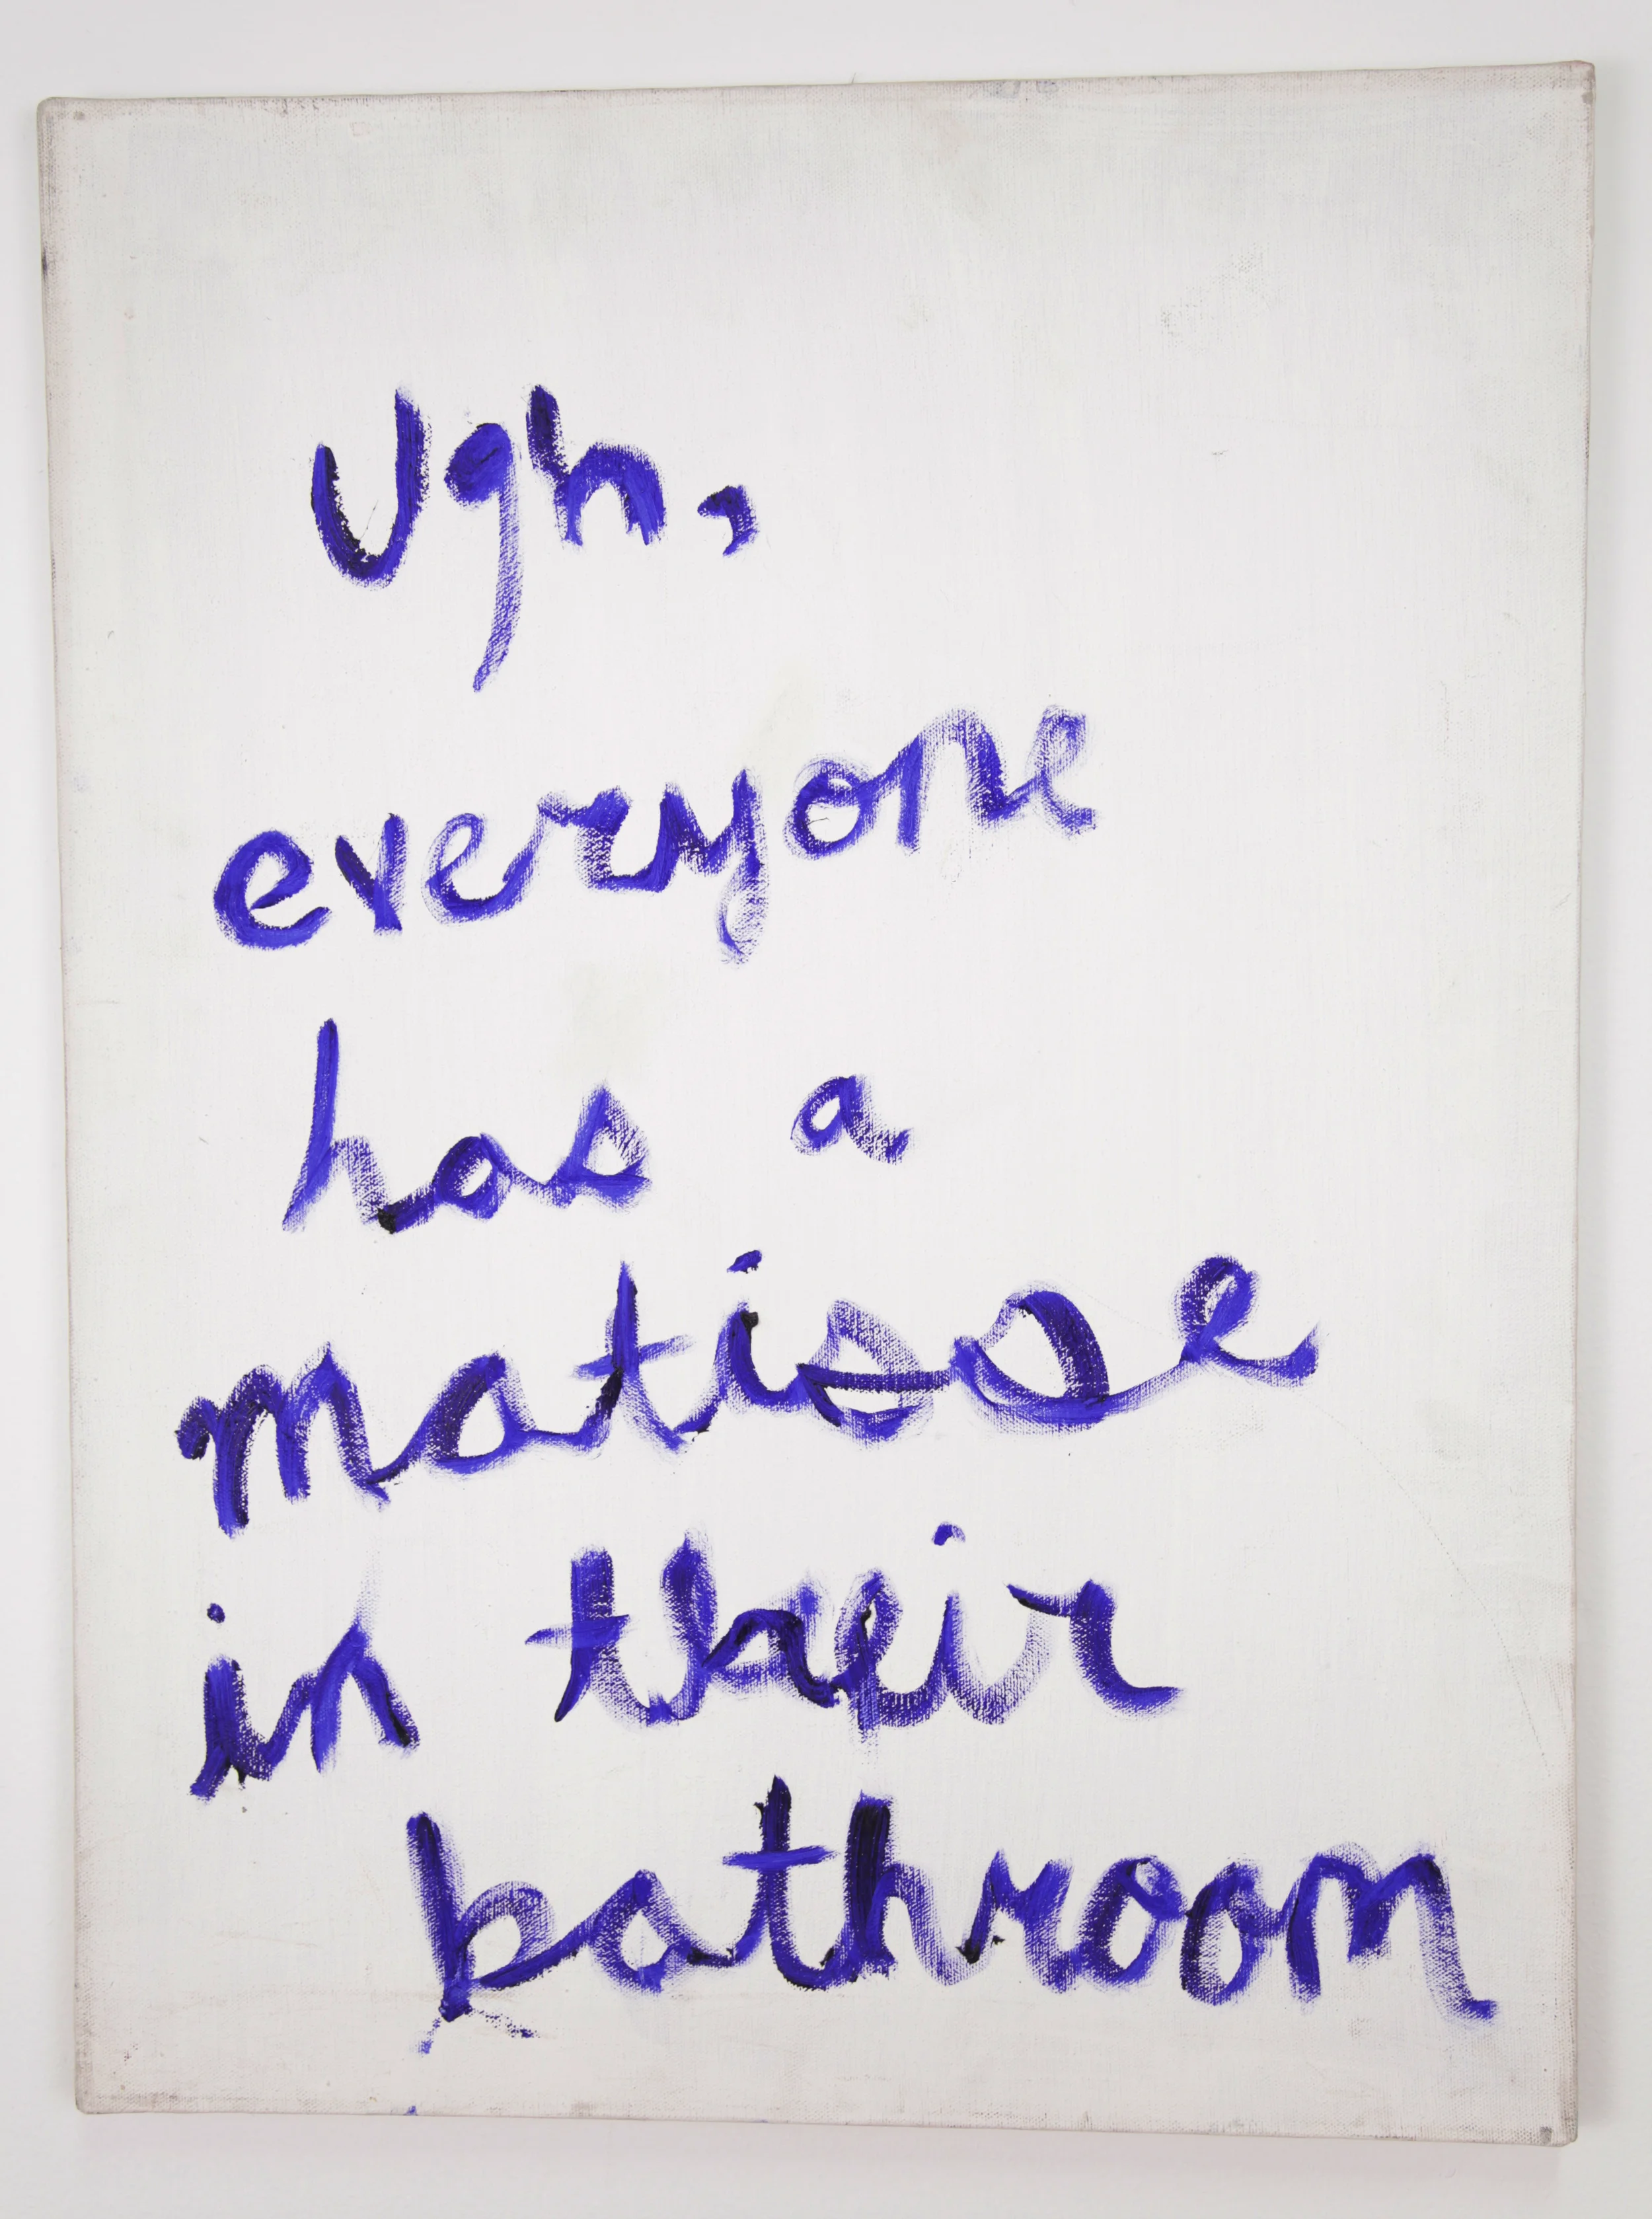 Ugh,
everyone
has a
matisse
in their
bathroom